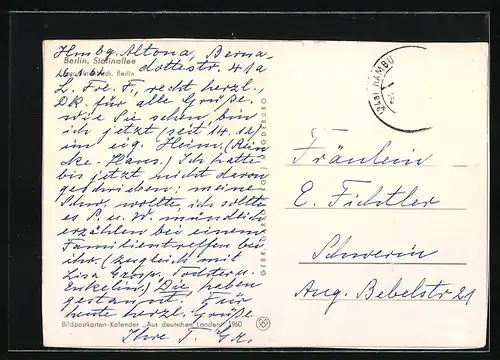 Berlin, Stalinallee
Berlin
Hmbg. Altona, Berna-
dottestr. 41a
16.1.62
L. Frl. F., recht herzl.
Dk. für alle Grüße.
wie Sie sehen, bin
ich jetzt (seit 14.12)
im eig. Heim.
Ich hatte
bis jetzt nicht davon
geschrieben: meine
Schw. wollte, ich sollte
es S. u. W. mündlich
erzählen bei einem
Familientreffen bei
ihr. (zugleich mit
Lisa Tochter u.
Enkelin.) Die haben
gestaunt! Für
heute herzl. Grüße
Ihre
Bildpostkarten-Kalender „Aus deutschen Landen" 1960
MAGDEBURG
(24a) HAMBU
Fräulein
E. Fichtler
Schwerin
Aug. Bebelstr 21